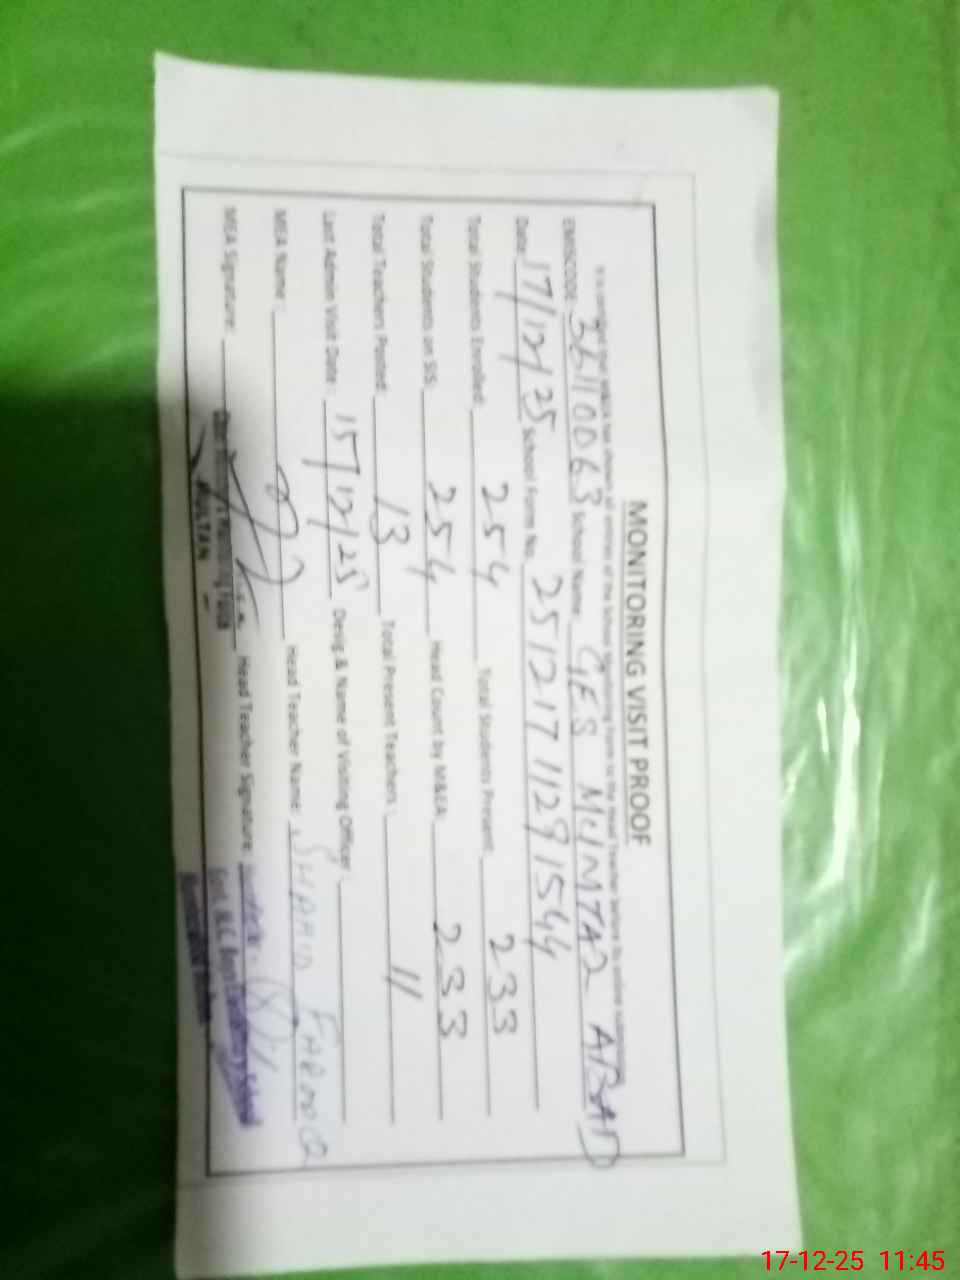 MONITORING VISIT PROOF
It is certified that M&EA has shown all entries of the School Monitoring Form to the Head Teacher before its online submission
EMISCODE: 36110063 School Name: GES MC MTAZ ABAD
Date: 17/12/25 School Form No. 2512171129 1544
Total Students Enrolled: 254 Total Students Present: 233
Total Students on SIS: 254 Head Count by M&EA: 233
Total Teachers Posted: 13 Total Present Teachers: 11
Last Admin Visit Date: 15/12/25 Desig & Name of Visiting Officer
MEA Name: Head Teacher Name: SHAHID FAROOQ
MEA Signature: Head Teacher Signature:
MULTAN
17-12-25 11:45